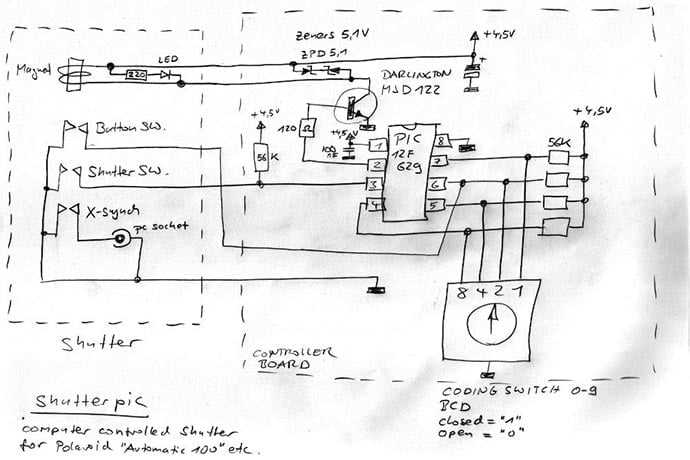 Zeners 5,1V
ZPD 5,1
LED
+4,5V
Magnet
220
+
DARLINGTON
MJD122
Button SW.
+4,5V
120
Ω
+4,5V
PIC
12F
629
1
2
3
4
8
7
6
5
56K
+4,5V
56
K
Shutter SW.
X-Synch
pc socket
8 4 2 1
Shutter
CONTROLLER
BOARD
CODING SWITCH 0-9
BCD
closed = "1"
open = "0"
Shutterpic
computer controlled Shutter
for Polaroid "Automatic 100" etc.